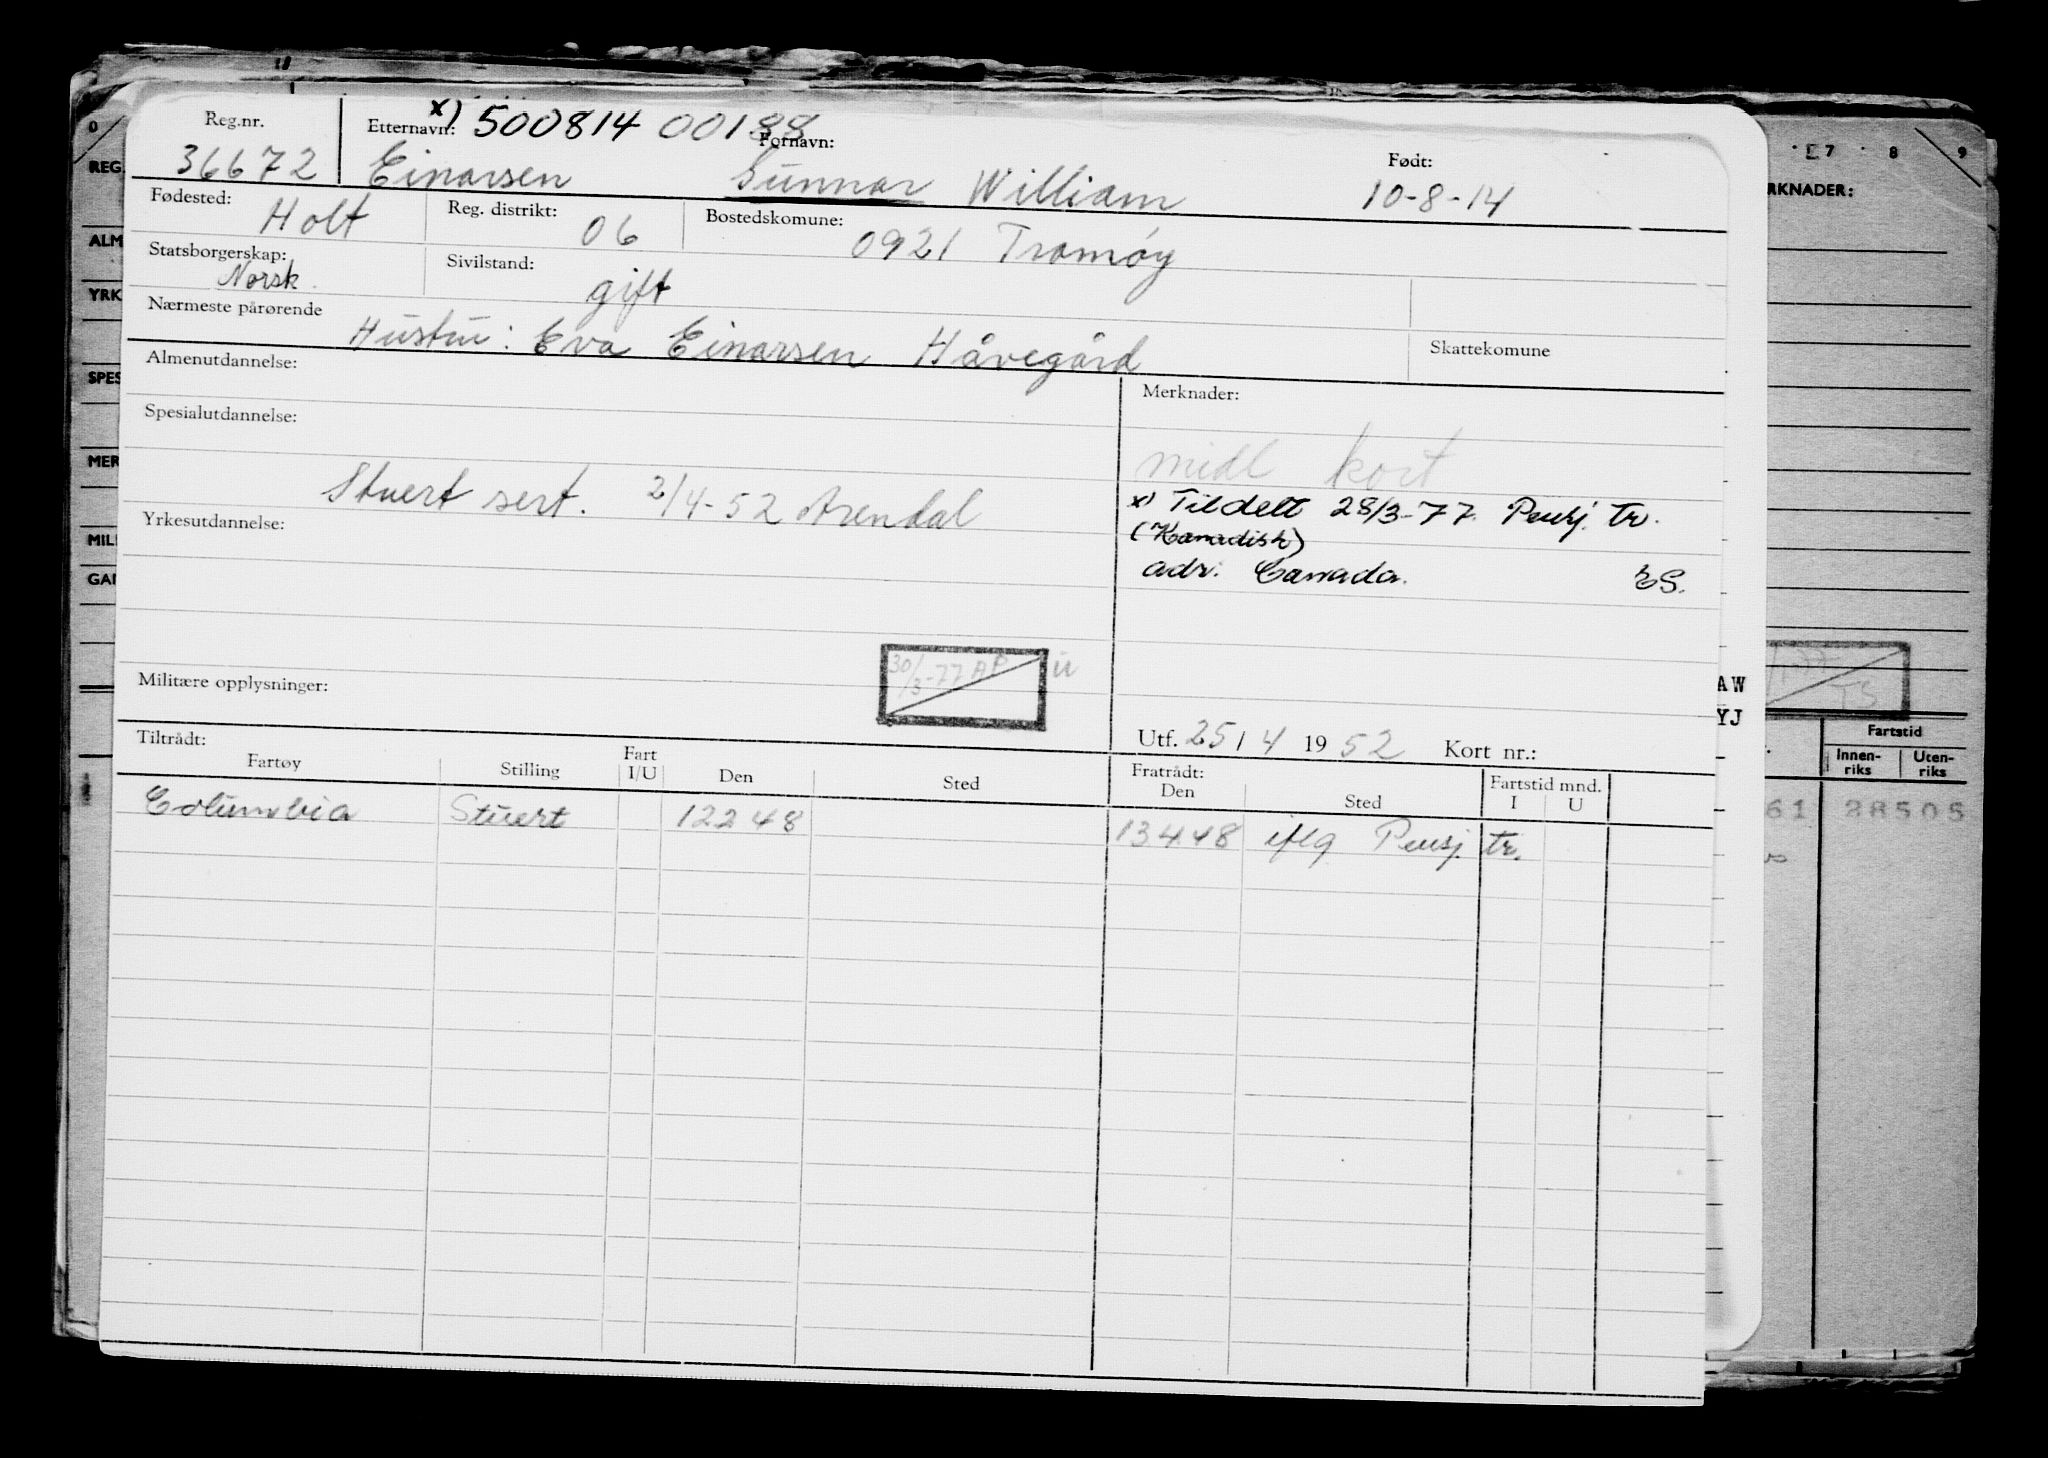 Reg.nr. Etternavn: x) 500814 00188 Fornavn: Født:
36672 Einarsen Gunnar William 10-8-14
Fødested: Holt Reg. distrikt: 06 Bostedskomune: 0921 Tromøy
Statsborgerskap: Norsk. Sivilstand: gift
Nærmeste pårørende Hustru: Eva Einarsen Håvegård Skattekomune
Almenutdannelse: Merknader:
Spesialutdannelse: midl kort
Stuert sert. 2/4-52 Arendal x) Tildelt 28/3-77. Pensj. tr.
Yrkesutdannelse: (Kanadisk)
adr. Canada. ES.
30/3-77 AP ü
Militære opplysninger:
Utf. 25/4 1952 Kort nr.:
Tiltrådt: Fratrådt: Fartstid mnd.
Fartøy Stilling Fart I/U Den Sted Den Sted I U
Columbia Stuert 12248 13448 iflg Pensj. tr.
0
REG.
ALM
YRK
SPES
MER
MIL
GAN
7 8 9
RKNADER:
TS
AW
YJ
Fartstid
Innen-riks Uten-riks
61 28505